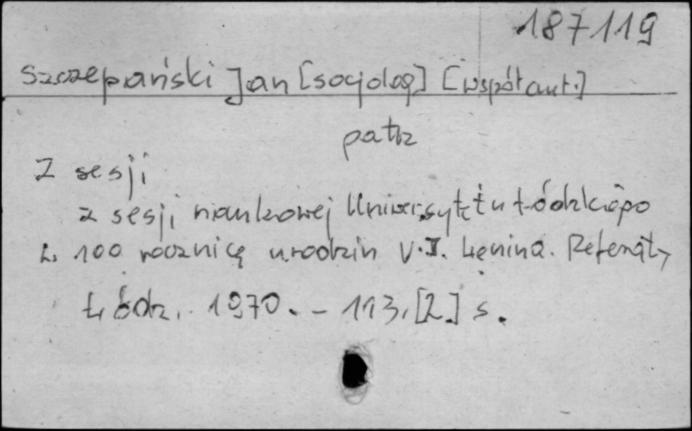 187119
Szczepański Jan [socjolog] [współaut.]
patrz
Z sesji
z sesji naukowej Uniwersytetu Łódzkiego
z 100 rocznicę urodzin V. I. Lenina. Referaty
Łódź, 1970. - 113, [2] s.